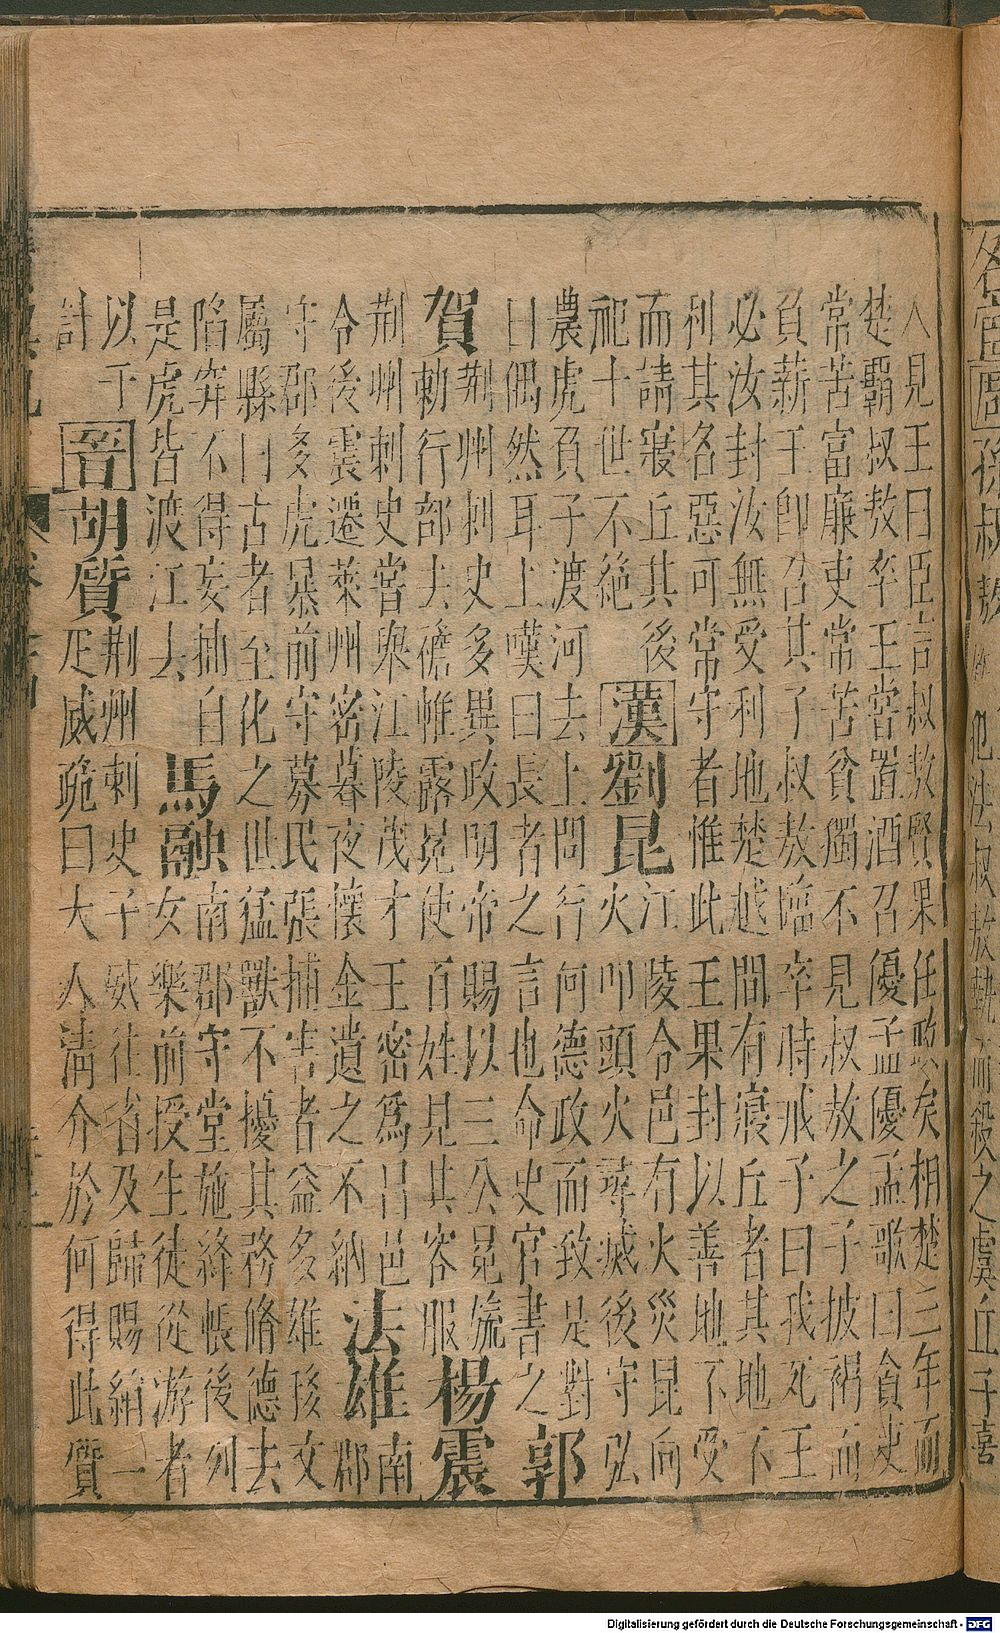 名宦周孫叔敖
犯法叔敖執而殺之虞丘子喜
入見王曰臣言叔敖賢果任政矣相楚三年而
楚霸叔敖卒王嘗置酒召優孟優孟歌曰貪吏
常苦富廉吏常苦貧獨不見叔敖之子披褐而
負薪王卽召其子叔敖臨卒時戒子曰我死王
必汝封汝無受利地楚越間有寢丘者其地不
利其名惡可常守者惟此王果封以善地不受
而請寢丘其後
祀十世不絶
漢劉昆
江陵令邑有火災昆向
火叩頭火尋滅後守弘
農虎負子渡河去上問行何德政而致是對
曰偶然耳上嘆曰長者之言也命史官書之
郭
賀
荆州刺史多異政明帝賜以三公冕旒
勅行部去襜帷露冕使百姓見其容服
楊震
荆州刺史當舉江陵茂才王密爲昌邑
令後震遷萊州密暮夜懷金遺之不納
法雄
南
郡
守郡多虎暴前守募民張捕害者益多雄移文
屬縣曰古者至化之世猛獸不擾其務脩德去
陷穽不得妄抽自
是虎皆渡江去
馬融
南郡守堂施絳帳後列
女樂前授生徒從游者
以千
計
晉胡質
荆州刺史子威往省及歸賜絹一
疋威跪曰大人淸介於何得此質
Digitalisierung gefördert durch die Deutsche Forschungsgemeinschaft - DFG